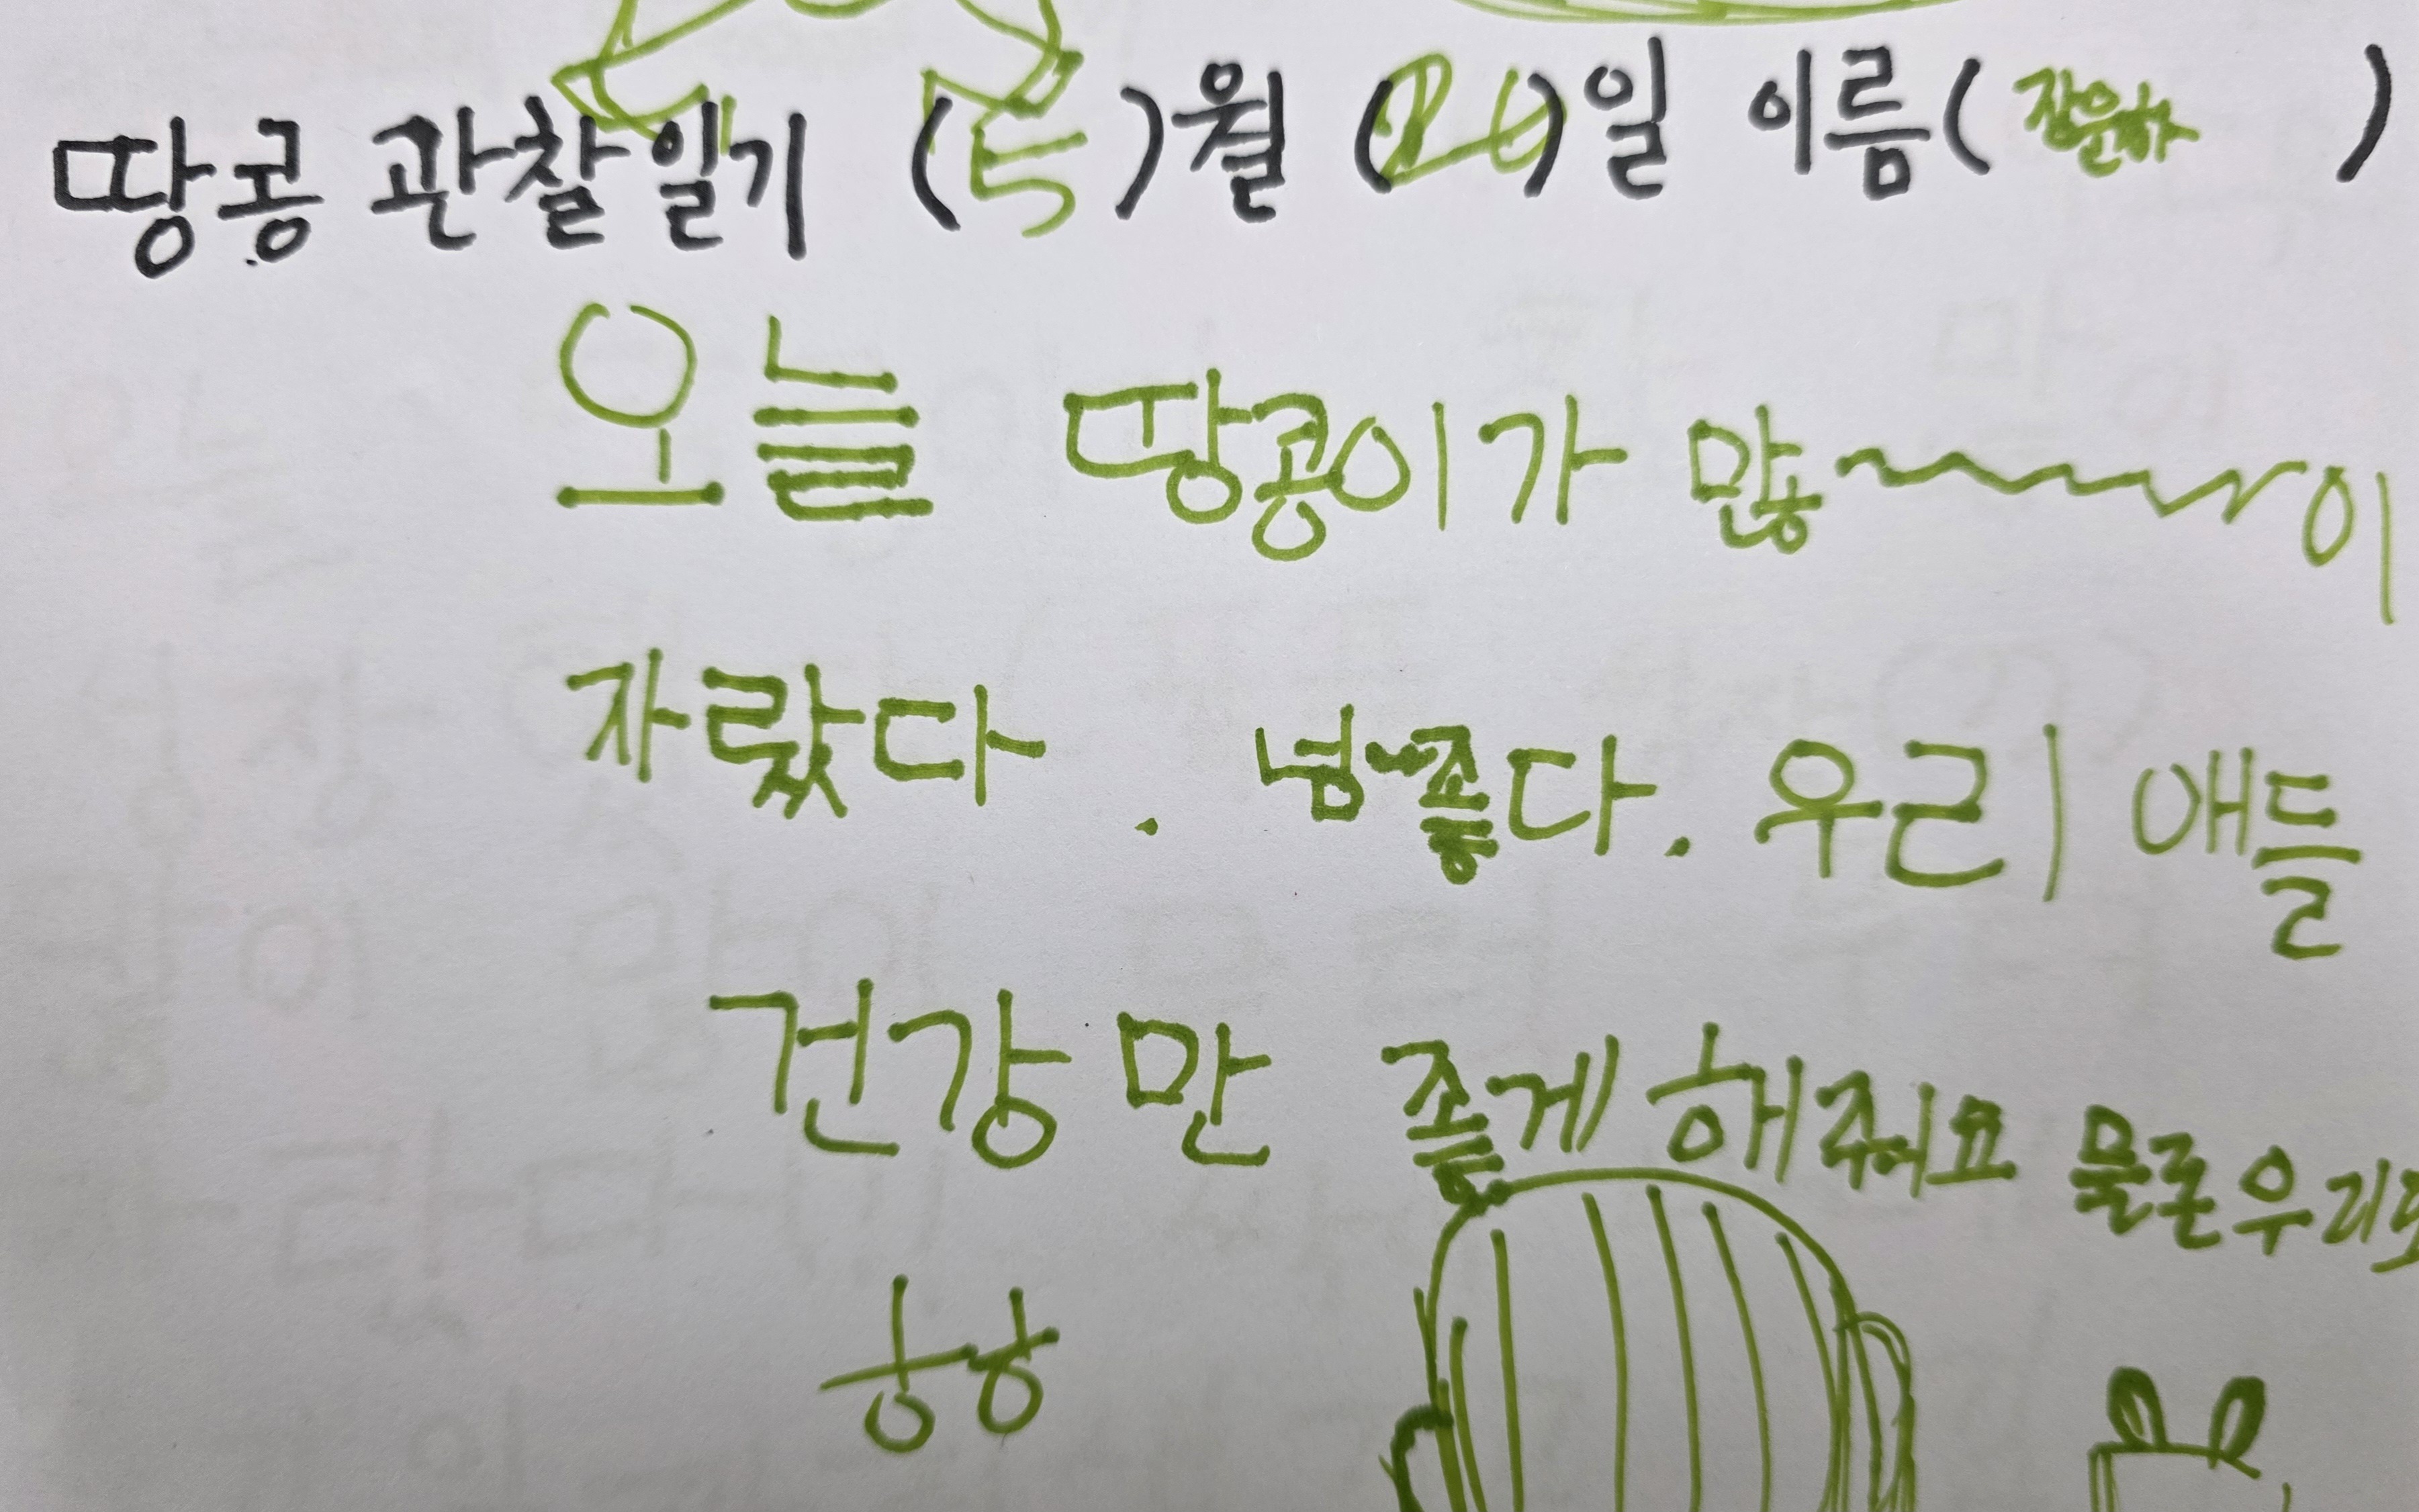 땅콩 관찰일기 (5)월 (20)일 이름(장윤하)
오늘 땅콩이가 많~~~~이
자랐다. 넘~좋다. 우리 애들
건강만 좋게 해줘요 물론우리도
ㅎㅎ